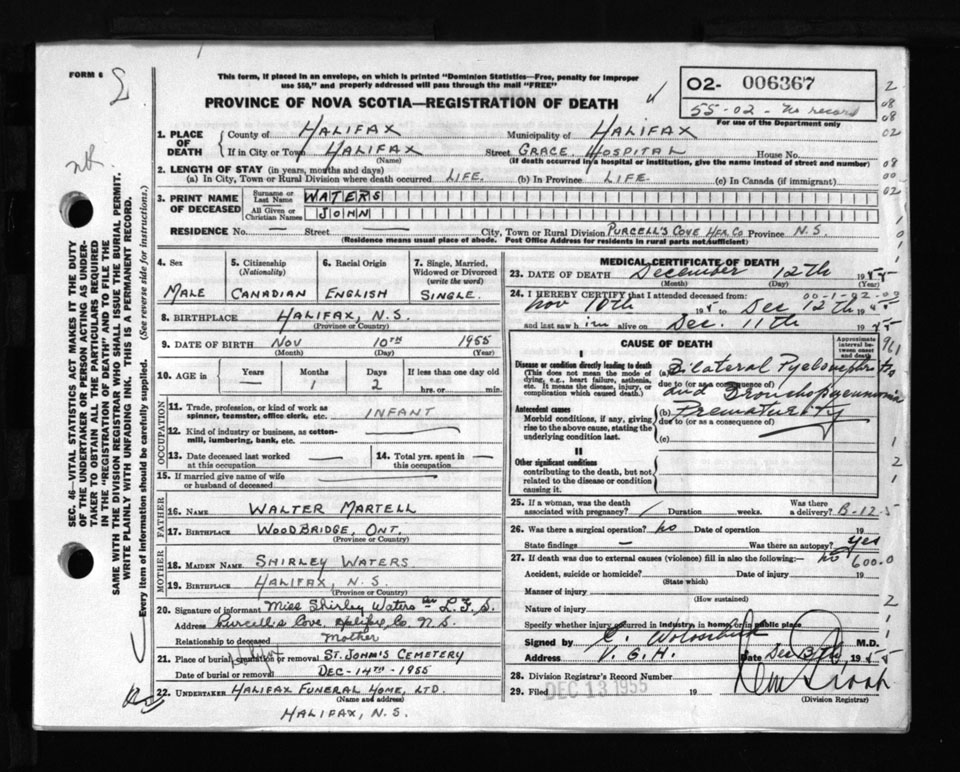 FORM 6
This form, if placed in an envelope, on which is printed "Dominion Statistics—Free, penalty for improper
use $50," and properly addressed will pass through the mail "FREE"
PROVINCE OF NOVA SCOTIA—REGISTRATION OF DEATH
02- 006367
55-02- No record
For use of the Department only
2
08
08
02
08
00
02
1. PLACE OF DEATH
County of HALIFAX Municipality of HALIFAX
If in City or Town HALIFAX Street GRACE HOSPITAL House No.
(Name) (If death occurred in a hospital or institution, give the name instead of street and number)
2. LENGTH OF STAY (in years, months and days)
(a) In City, Town or Rural Division where death occurred LIFE. (b) In Province LIFE. (c) In Canada (if immigrant)
3. PRINT NAME OF DECEASED
Surname or Last Name WATERS
All Given or Christian Names JOHN
RESIDENCE No. — Street — City, Town or Rural Division PURCELL'S COVE HFX. CO Province N.S.
(Residence means usual place of abode. Post Office Address for residents in rural parts not sufficient)
4. Sex MALE
5. Citizenship (Nationality) CANADIAN
6. Racial Origin ENGLISH
7. Single, Married, Widowed or Divorced (write the word) SINGLE.
8. BIRTHPLACE HALIFAX, N.S.
(Province or Country)
9. DATE OF BIRTH NOV 10TH 1955
(Month) (Day) (Year)
10. AGE in Years — Months 1 Days 2 If less than one day old hrs. or min.
OCCUPATION
11. Trade, profession, or kind of work as spinner, teamster, office clerk, etc. INFANT
12. Kind of industry or business, as cotton-mill, lumbering, bank, etc. —
13. Date deceased last worked at this occupation —
14. Total yrs. spent in this occupation —
15. If married give name of wife or husband of deceased —
FATHER
16. NAME WALTER MARTELL
17. BIRTHPLACE WOODBRIDGE, ONT.
(Province or Country)
MOTHER
18. MAIDEN NAME SHIRLEY WATERS
19. BIRTHPLACE HALIFAX, N.S.
(Province or Country)
20. Signature of informant Miss Shirley Waters per L.F.S.
Address Purcell's Cove, Halifax Co. N.S.
Relationship to deceased Mother
21. Place of burial, cremation or removal ST. JOHN'S CEMETERY
Date of burial or removal DEC-14TH-1955
22. UNDERTAKER HALIFAX FUNERAL HOME, LTD.
(Name and address)
HALIFAX, N.S.
MEDICAL CERTIFICATE OF DEATH
23. DATE OF DEATH December 12th 1955
(Month) (Day) (Year)
24. I HEREBY CERTIFY that I attended deceased from:
Nov 10th 195 to Dec 12th 1955
and last saw him alive on Dec. 11th 1955
CAUSE OF DEATH
Approximate interval between onset and death
I
Disease or condition directly leading to death
(This does not mean the mode of dying, e.g., heart failure, asthenia, etc. It means the disease, injury, or complication which caused death.)
(a) Bilateral Pyelonephritis
due to (or as a consequence of)
and Bronchopneumonia
Antecedent causes
Morbid conditions, if any, giving rise to the above cause, stating the underlying condition last.
(b) Prematurity
due to (or as a consequence of)
(c)
II
Other significant conditions
contributing to the death, but not related to the disease or condition causing it.
25. If a woman, was the death associated with pregnancy? Duration weeks. Was there a delivery?
B-12-5
26. Was there a surgical operation? no Date of operation 19
State findings — Was there an autopsy? yes
27. If death was due to external causes (violence) fill in also the following:— no
600.0
Accident, suicide or homicide? Date of injury 19
(State which)
Manner of injury
(How sustained)
Nature of injury
Specify whether injury occurred in industry, in home, or in public place
Signed by M.D.
Address V.G.H. Date Dec 1955
28. Division Registrar's Record Number
29. Filed DEC 13 1955 19
(Division Registrar)
SEC. 46—VITAL STATISTICS ACT MAKES IT THE DUTY
OF THE UNDERTAKER OR PERSON ACTING AS UNDER-
TAKER TO OBTAIN ALL THE PARTICULARS REQUIRED
IN THE "REGISTRATION OF DEATH" AND TO FILE THE
SAME WITH THE DIVISION REGISTRAR WHO SHALL ISSUE THE BURIAL PERMIT.
WRITE PLAINLY WITH UNFADING INK. THIS IS A PERMANENT RECORD.
Every item of information should be carefully supplied. (See reverse side for instructions.)